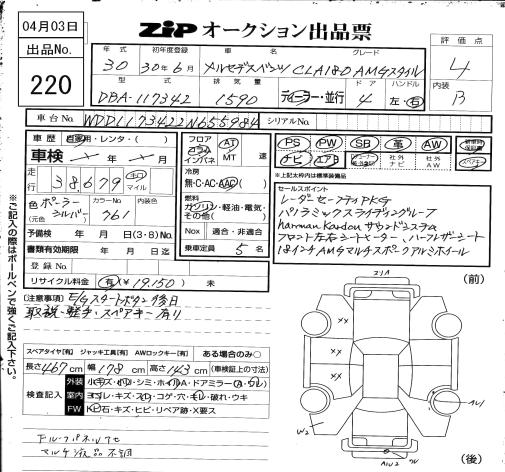 04月03日
出品No.
220
ZIP オークション出品票
年式 初年度登録 車名 グレード
30 30年6月 メルセデスベンツ CLA180 AMGスタイル
型式 排気量 ドア ハンドル
DBA-117342 1590 ディーラー・並行 4 左・右
評価点
4
内装
B
車台No. WDD1173422N655984 シリアルNo.
車歴 自家用・レンタ・( )
車検 年 月
走行 38,679 キロ マイル
色 (元色) ポーラーシルバー カラーNo. 761 内装色
予備検 年 月 日(3・6)
書類有効期限 年 月 日迄
登録No.
リサイクル料金 有(¥19,150) 未
フロア コラム インパネ AT MT 速
冷房 無・C・AC・AAC( )
燃料 ガソリン・軽油・電気・その他( )
Nox 適合・非適合
乗車定員 5 名
PS PW SB 革 AW
ナビ エアB 社外ナビ 社外AW スペアキー
※上記太枠内は標準装備品
セールスポイント
レーダーセーフティPKG
パノラミックスライディングルーフ
harman Kardon サウンドシステム
フロント左右シートヒーター、ハーフレザーシート
18インチAMGマルチスポークアルミホイール
※ご記入の際はボールペンで強くご記入下さい。
[注意事項] E/Gスタートボタン後日
取説・軽手・スペアキー有り
スペアタイヤ[有] ジャッキ工具[有] AWロックキー[有] ある場合のみ○
長さ 467 cm 幅 178 cm 高さ 143 cm (車検証上の寸法)
検査記入
外装 小キズ・凹・シミ・ホイルA・ドアミラー(A・ワレ)
室内 ヨゴレ・キズ・スレ・コゲ・穴・モレ・破れ・ウキ
FW 飛石・キズ・ヒビ・リペア跡・X要ス
(前)
(後)
ZIA
XX
XX
XX
W2